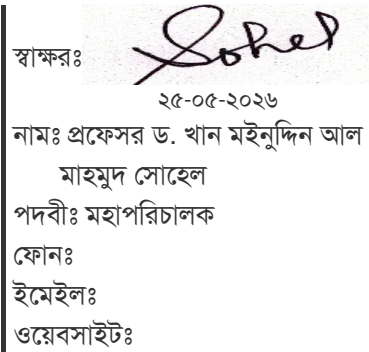 স্বাক্ষরঃ Sohel
২৫-০৫-২০২৬
নামঃ প্রফেসর ড. খান মইনুদ্দিন আল
মাহমুদ সোহেল
পদবীঃ মহাপরিচালক
ফোনঃ
ইমেইলঃ
ওয়েবসাইটঃ